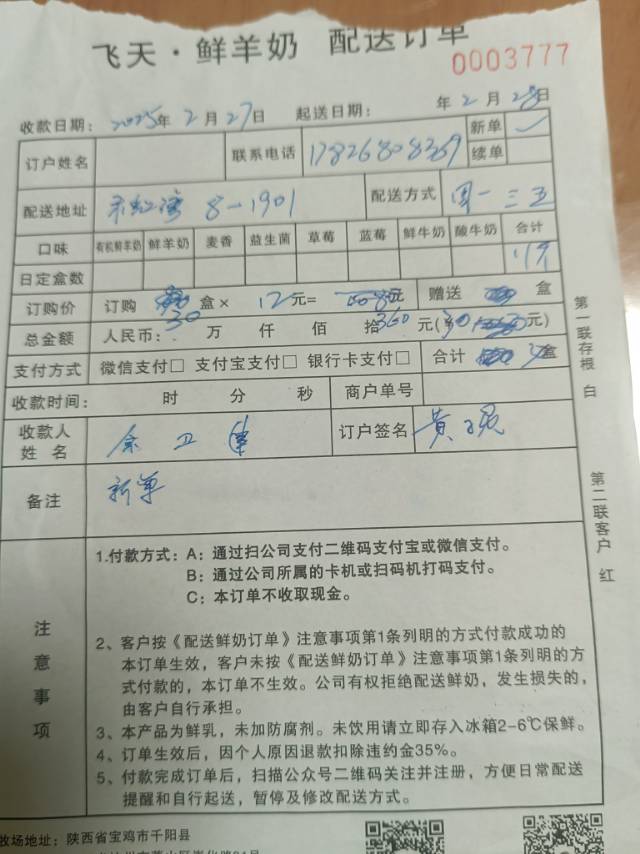 飞天·鲜羊奶 配送订单
0003777
收款日期： 2025年 2月 27日 起送日期： 年 2月 28日
订户姓名 联系电话 17826808369 新单 ✓
续单
配送地址 8-1901 配送方式 周一三五
口味 有机鲜羊奶 鲜羊奶 麦香 益生菌 草莓 蓝莓 鲜牛奶 酸牛奶 合计
日定盒数
订购价 订购 30 盒× 12元= 元 赠送 盒
总金额 人民币： 万 仟 佰 拾 360 元( 元)
支付方式 微信支付□ 支付宝支付□ 银行卡支付□ 合计 盒
收款时间： 时 分 秒 商户单号
收款人
姓 名 余卫 订户签名 黄
备注 新单
注意事项
1.付款方式：A：通过扫公司支付二维码支付宝或微信支付。
B：通过公司所属的卡机或扫码机打码支付。
C：本订单不收取现金。
2、客户按《配送鲜奶订单》注意事项第1条列明的方式付款成功的
本订单生效，客户未按《配送鲜奶订单》注意事项第1条列明的方
式付款的，本订单不生效。公司有权拒绝配送鲜奶，发生损失的，
由客户自行承担。
3、本产品为鲜乳，未加防腐剂。未饮用请立即存入冰箱2-6℃保鲜。
4、订单生效后，因个人原因退款扣除违约金35%。
5、付款完成订单后，扫描公众号二维码关注并注册，方便日常配送
提醒和自行起送，暂停及修改配送方式。
牧场地址：陕西省宝鸡市千阳县
第一联存根 白
第二联客户 红